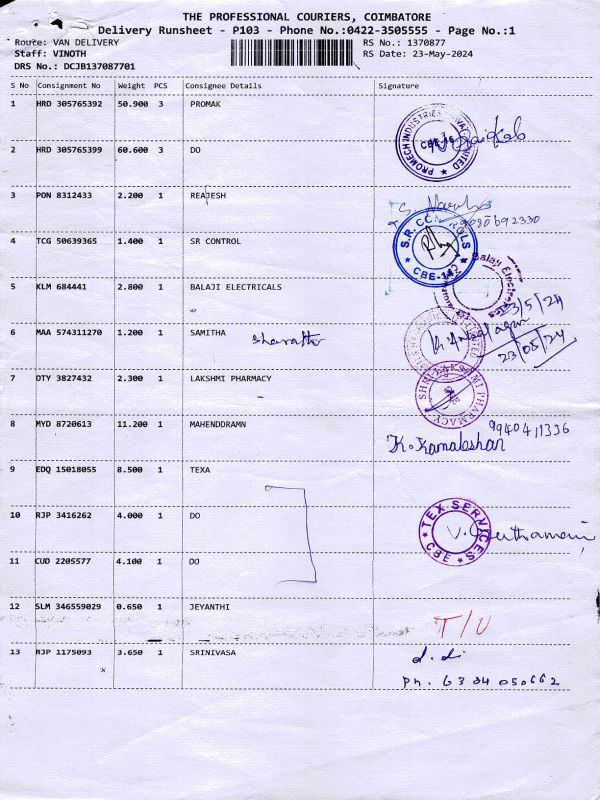 THE PROFESSIONAL COURIERS, COIMBATORE
Delivery Runsheet - P103 - Phone No.:0422-3505555 - Page No.:1
Route: VAN DELIVERY RS No.: 1370877
Staff: VINOTH RS Date: 23-May-2024
DRS No.: DCJB137087701
S No Consignment No Weight PCS Consignee Details Signature
1 HRD 305765392 50.900 3 PROMAK
PROMECH INDUSTRIES PRIVATE LIMITED CBE-16
2 HRD 305765399 60.600 3 DO
3 PON 8312433 2.200 1 REAJESH
4 TCG 50639365 1.400 1 SR CONTROL
S.R. CONTROLS CBE-142
5 KLM 684441 2.800 1 BALAJI ELECTRICALS
Balaji Electricals
6 MAA 574311270 1.200 1 SAMITHA
23/05/24
7 OTY 3827432 2.300 1 LAKSHMI PHARMACY
SHRI LAKSHMI PHARMACY
8 MYD 8720613 11.200 1 MAHENDDRAMN
K. Kamaleshan
9 EDQ 15018055 8.500 1 TEXA
10 RJP 3416262 4.000 1 DO
TEX SERVICES CBE
11 CUD 2205577 4.100 1 DO
12 SLM 346559029 0.650 1 JEYANTHI T/U
13 RJP 1175093 3.650 1 SRINIVASA